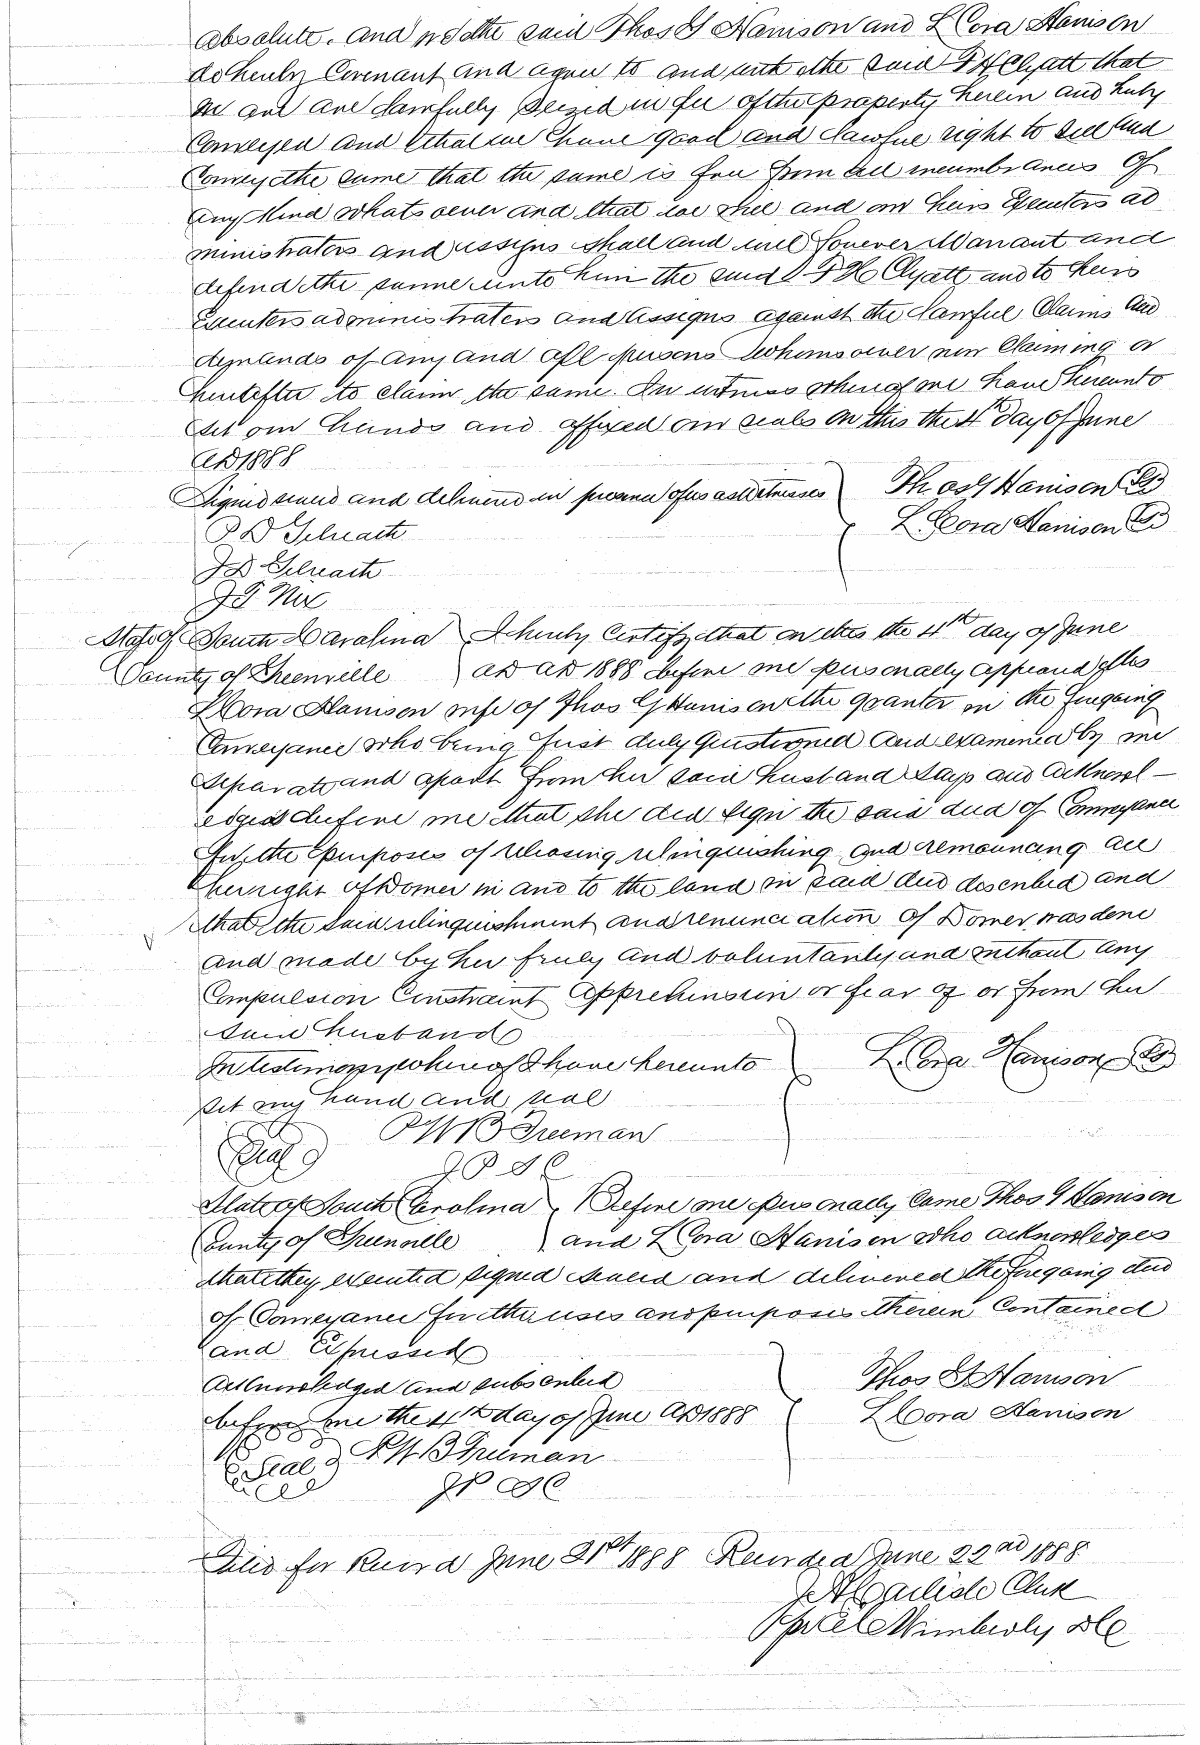 absolute. And we the said Thos G Harrison and L Cora Harrison
do hereby Covenant and agree to and with the said F H Clyatt that
we are lawfully seized in fee of the property herein and hereby
Conveyed and that we have good and lawful right to sell and
Convey the same that the same is free from all incumbrances of
any Kind whatsoever and that we shall and our heirs Executors ad
ministrators and assigns shall and will forever Warrant and
defend the same unto him the said F H Clyatt and to heirs
Executors administrators and assigns against the lawful Claims and
demands of any and all persons whomsoever now Claiming or
hereafter to claim the same. In witness whereof we have hereunto
set our hands and affixed our seals on this the 4th day of June
AD 1888
Signed sealed and delivered in presence of us as Witnesses } Thos G Harrison LS
P D Gilreath } L. Cora Harrison LS
J D Gilreath
J F Nix
State of South Carolina } I hereby Certify that on this the 4th day of June
County of Greenville } AD AD 1888 before me personally appeared
L Cora Harrison wife of Thos G Harrison the grantor in the foregoing
Conveyance who being first duly Questioned and examined by me
separate and apart from her said husband says and acknowl-
edges before me that she did sign the said deed of Conveyance
for the purposes of releasing relinquishing and renouncing all
her right of Dower in and to the land in said deed described and
that the said relinquishment and renunciation of Dower was done
and made by her freely and voluntarily and without any
Compulsion Constraint Apprehension or fear of or from her
said husband
In testimony whereof I have hereunto } L. Cora Harrison LS
set my hand and seal
Seal P W B Freeman
J P S C
State of South Carolina } Before me personally Came Thos G Harrison
County of Greenville } and L Cora Harrison who acknowledges
that they executed signed sealed and delivered the foregoing deed
of Conveyance for the uses and purposes therein Contained
and Expressed
Acknowledged and subscribed } Thos G Harrison
before me the 4th day of June AD 1888 } L Cora Harrison
Seal P W B Freeman
J P S C
Filed for Record June 21st 1888 Recorded June 22nd 1888
J A Carlisle Clerk
Per Wimberly D C